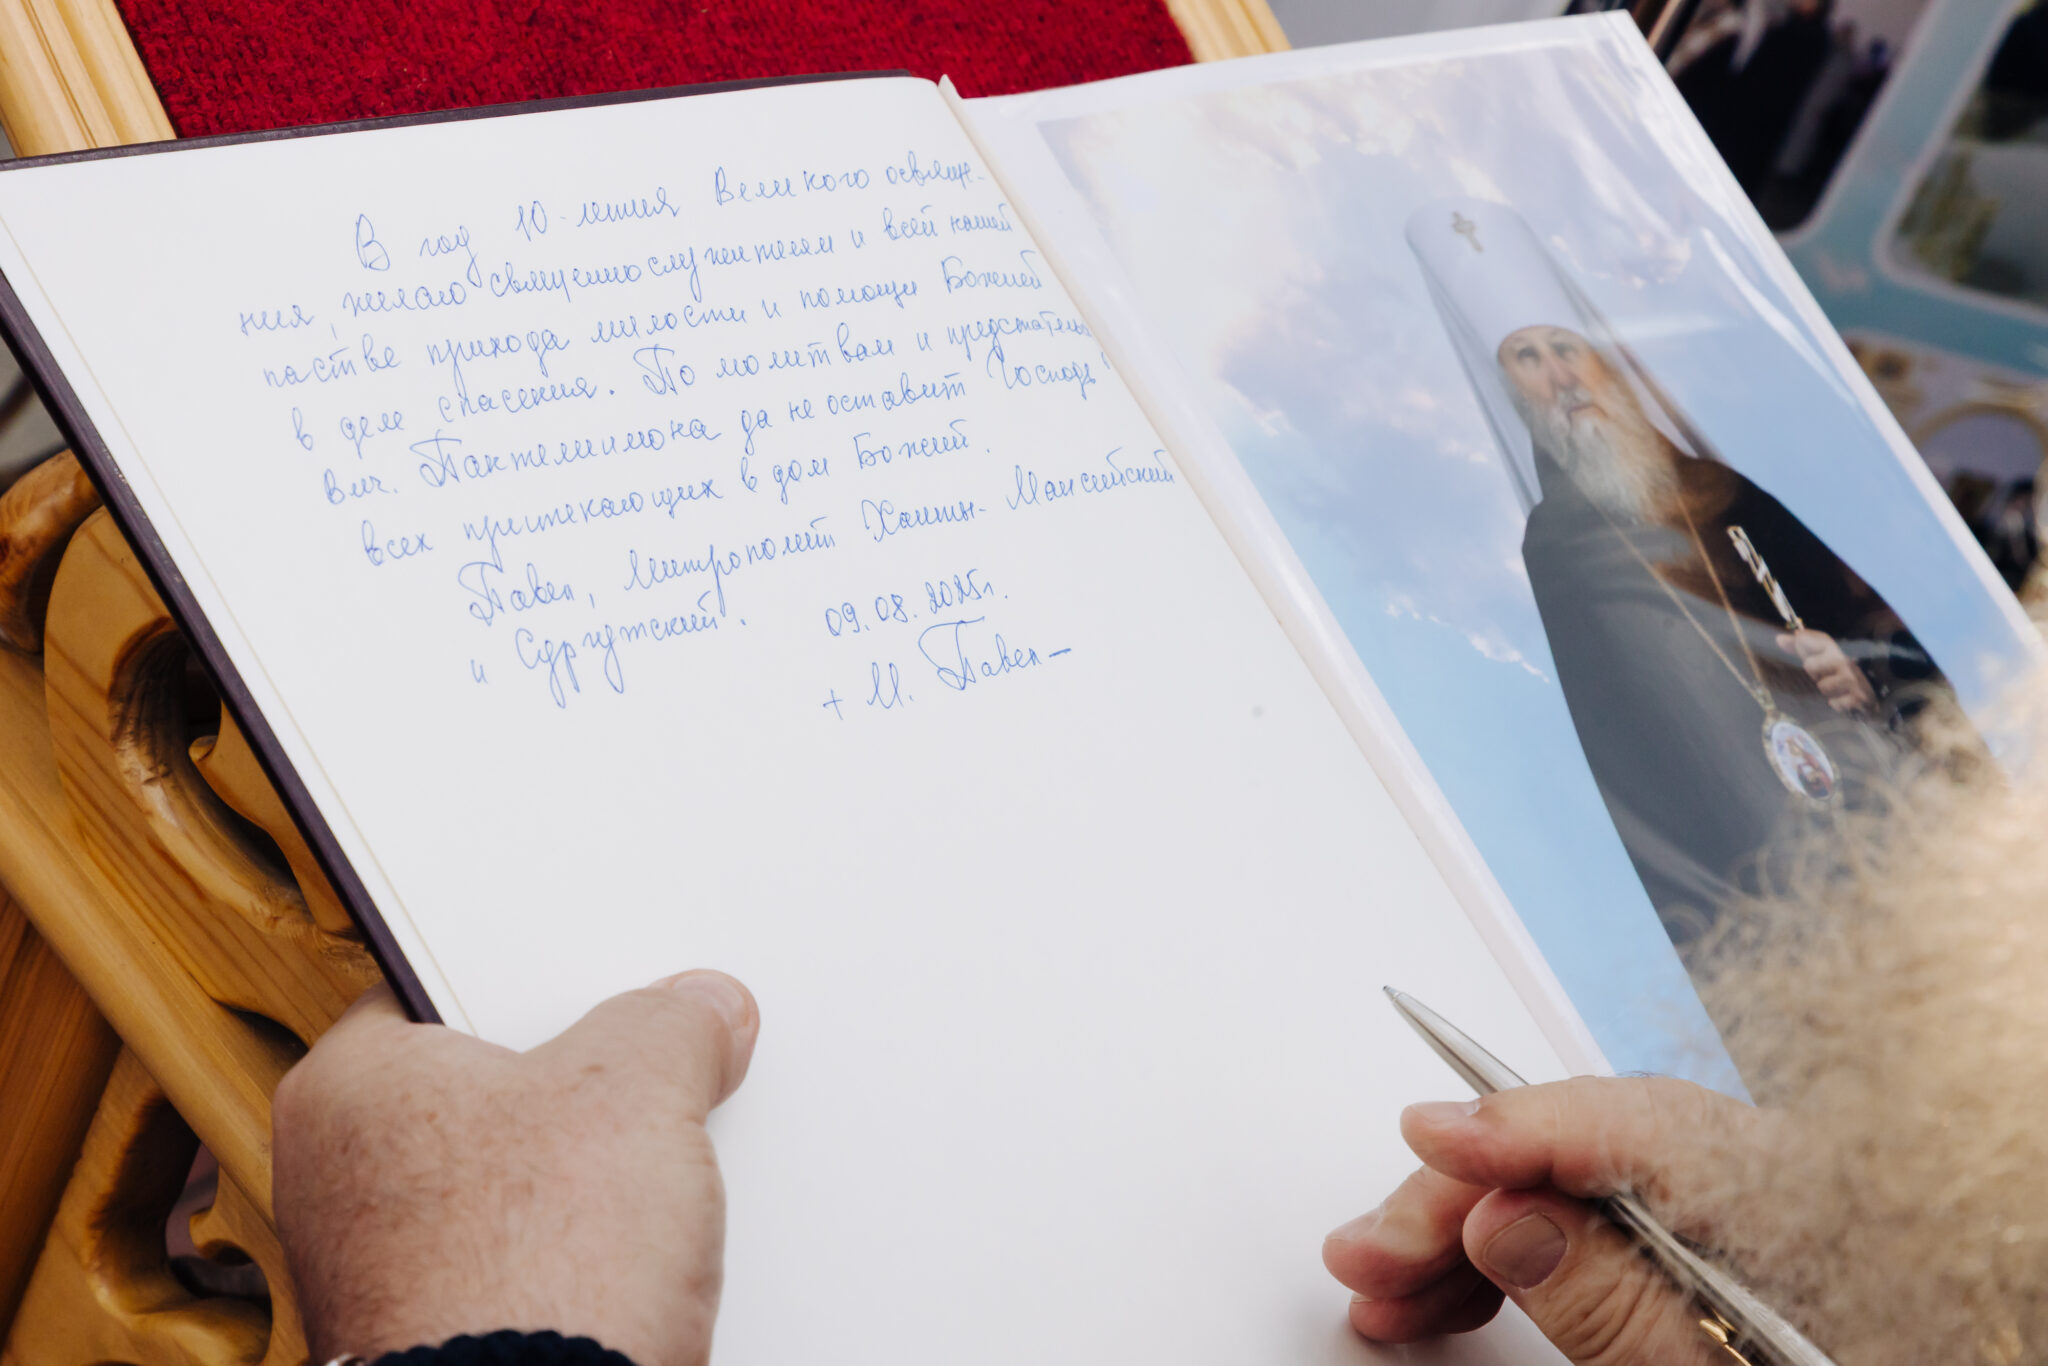 В год 10-летия Великого освяще-
ния, желаю священнослужителям и всей нашей
пастве прихода милости и помощи Божией
в деле спасения. По молитвам и предстательс
вмч. Пантелеимона да не оставит Господь
всех притекающих в дом Божий.
Павел, Митрополит Ханты-Мансийский
и Сургутский. 09.08.2025г.
+ М. Павел